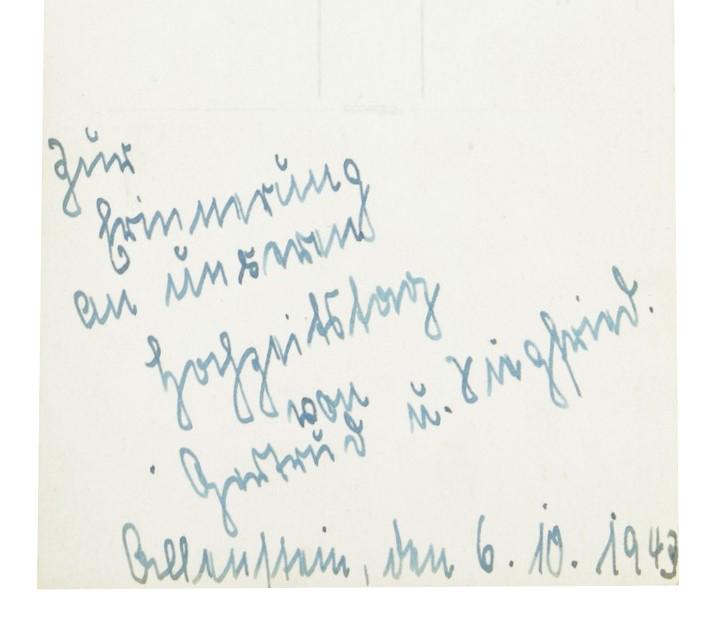 Zur
Erinnerung
an unseren
Hochzeitstag
von
Gertrud u. Siegfried.
Allenstein, den 6. 10. 1943